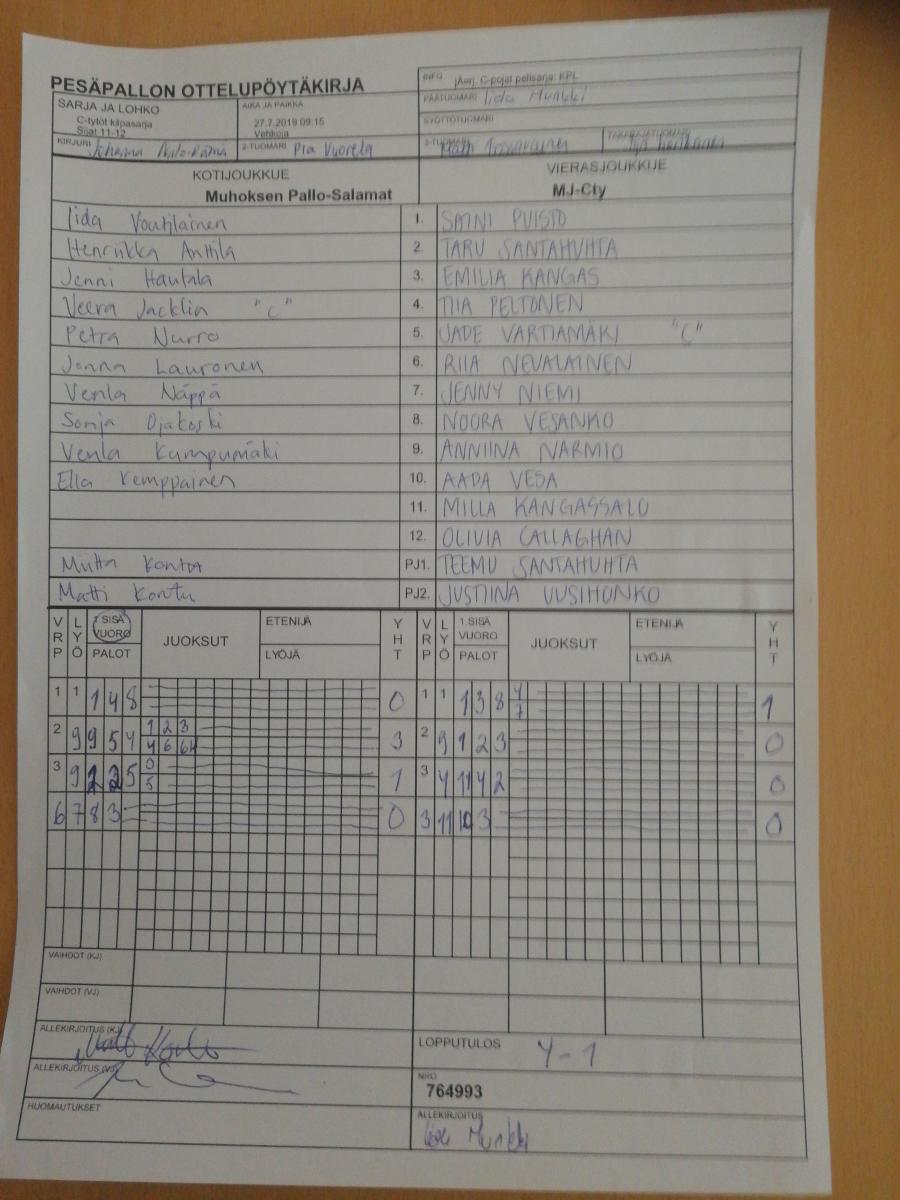 PESÄPALLON OTTELUPÖYTÄKIRJA
INFO jÄarj. C-pojat pelisarja: KPL
PÄÄTUOMARI Iida Munkki
SYÖTTÖTUOMARI
SARJA JA LOHKO
C-tytöt kilpasarja
Sijat 11-12
AIKA JA PAIKKA
27.7.2018 09:15
Vehkoja
KIRJURI Johanna
2-TUOMARI Pia Vuorela
3-TUOMARI Matti
TAKARAJATUOMARI
KOTIJOUKKUE
Muhoksen Pallo-Salamat
VIERASJOUKKUE
MJ-Cty
Iida Voutilainen 1. SAINI PUISTO
Henriikka Anttila 2. TARU SANTAHUHTA
Jenni Hautala 3. EMILIA KANGAS
Veera Jacklin "C" 4. TIIA PELTONEN
Petra Nurro 5. JADE VARTIAMÄKI "C"
Jonna Lauronen 6. RIIA NEVALAINEN
Venla Näppä 7. JENNY NIEMI
Sonja Ojakoski 8. NOORA VESANKO
Venla Kumpumäki 9. ANNIINA NARMIO
Ella Kemppainen 10. AADA VESA
11. MILLA KANGASSALO
12. OLIVIA CALLAGHAN
Kontu PJ1. TEEMU SANTAHUHTA
Matti Kontu PJ2. JUSTIINA UUSIHONKO
VRP LYÖ 1 SISÄ VUORO PALOT JUOKSUT ETENIJÄ LYÖJÄ YHT VRP LYÖ 1 SISÄ VUORO PALOT JUOKSUT ETENIJÄ LYÖJÄ YHT
1 1 1 4 8 0 1 1 1 3 8 4 7 1
2 9 9 5 4 1 2 3 4 6 3 2 9 1 2 3 0
3 9 5 0 5 1 3 4 11 4 2 0
6 7 8 3 0 3 11 3 0
VAIHDOT (KJ)
VAIHDOT (VJ)
ALLEKIRJOITUS (KJ)
LOPPUTULOS 4-1
ALLEKIRJOITUS (VJ)
NRO
764993
HUOMAUTUKSET
ALLEKIRJOITUS
Iida Munkki